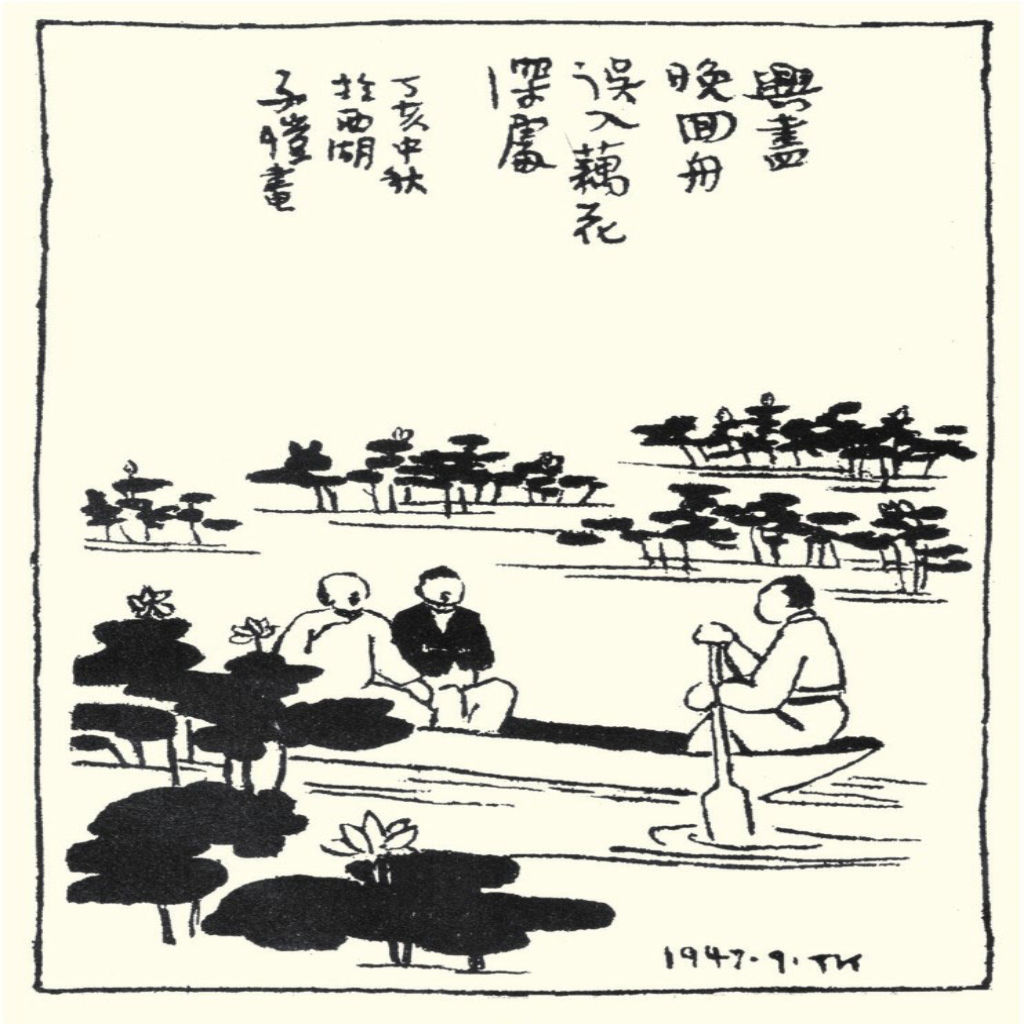 興盡
晚回舟
误入藕花
深處
丁亥中秋
於西湖
子愷畫
1947.9.TK